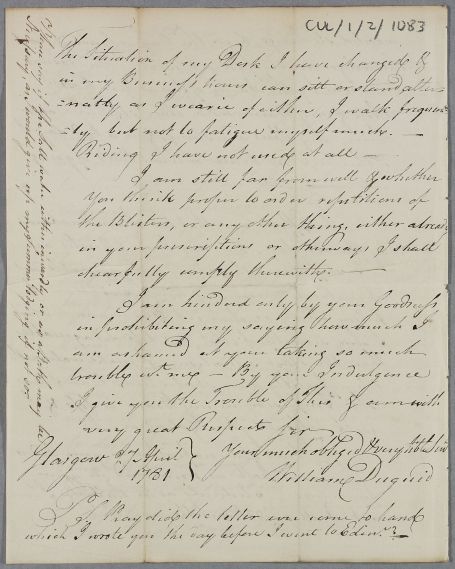 CUL/1/2/1083
The Situation of my Desk I have changed &
in my Business hours can sitt or stand alter-
=natly as I wearie of either, I walk frequent
=ly but not to fatigue myself much. —
Riding I have not used at all —
I am still far from well & whether
You think proper to order repetitions of
the Blisters, or any other thing, either already
in your prescriptions or otherways I shall
chearfully comply therewith. —
I am hindred only by your Goodness
in prohibiting my saying how much I
am ashamed at your taking so much
trouble wt. me — By your Indulgence
I give you the Trouble of This & am with
very great Respects Sir
Your much obliged & very
Glasgow 27 April
1781
William Duguid
P.S. Pray did the letter ever come to hand
which I wrote you the day before I went to Edinr.?